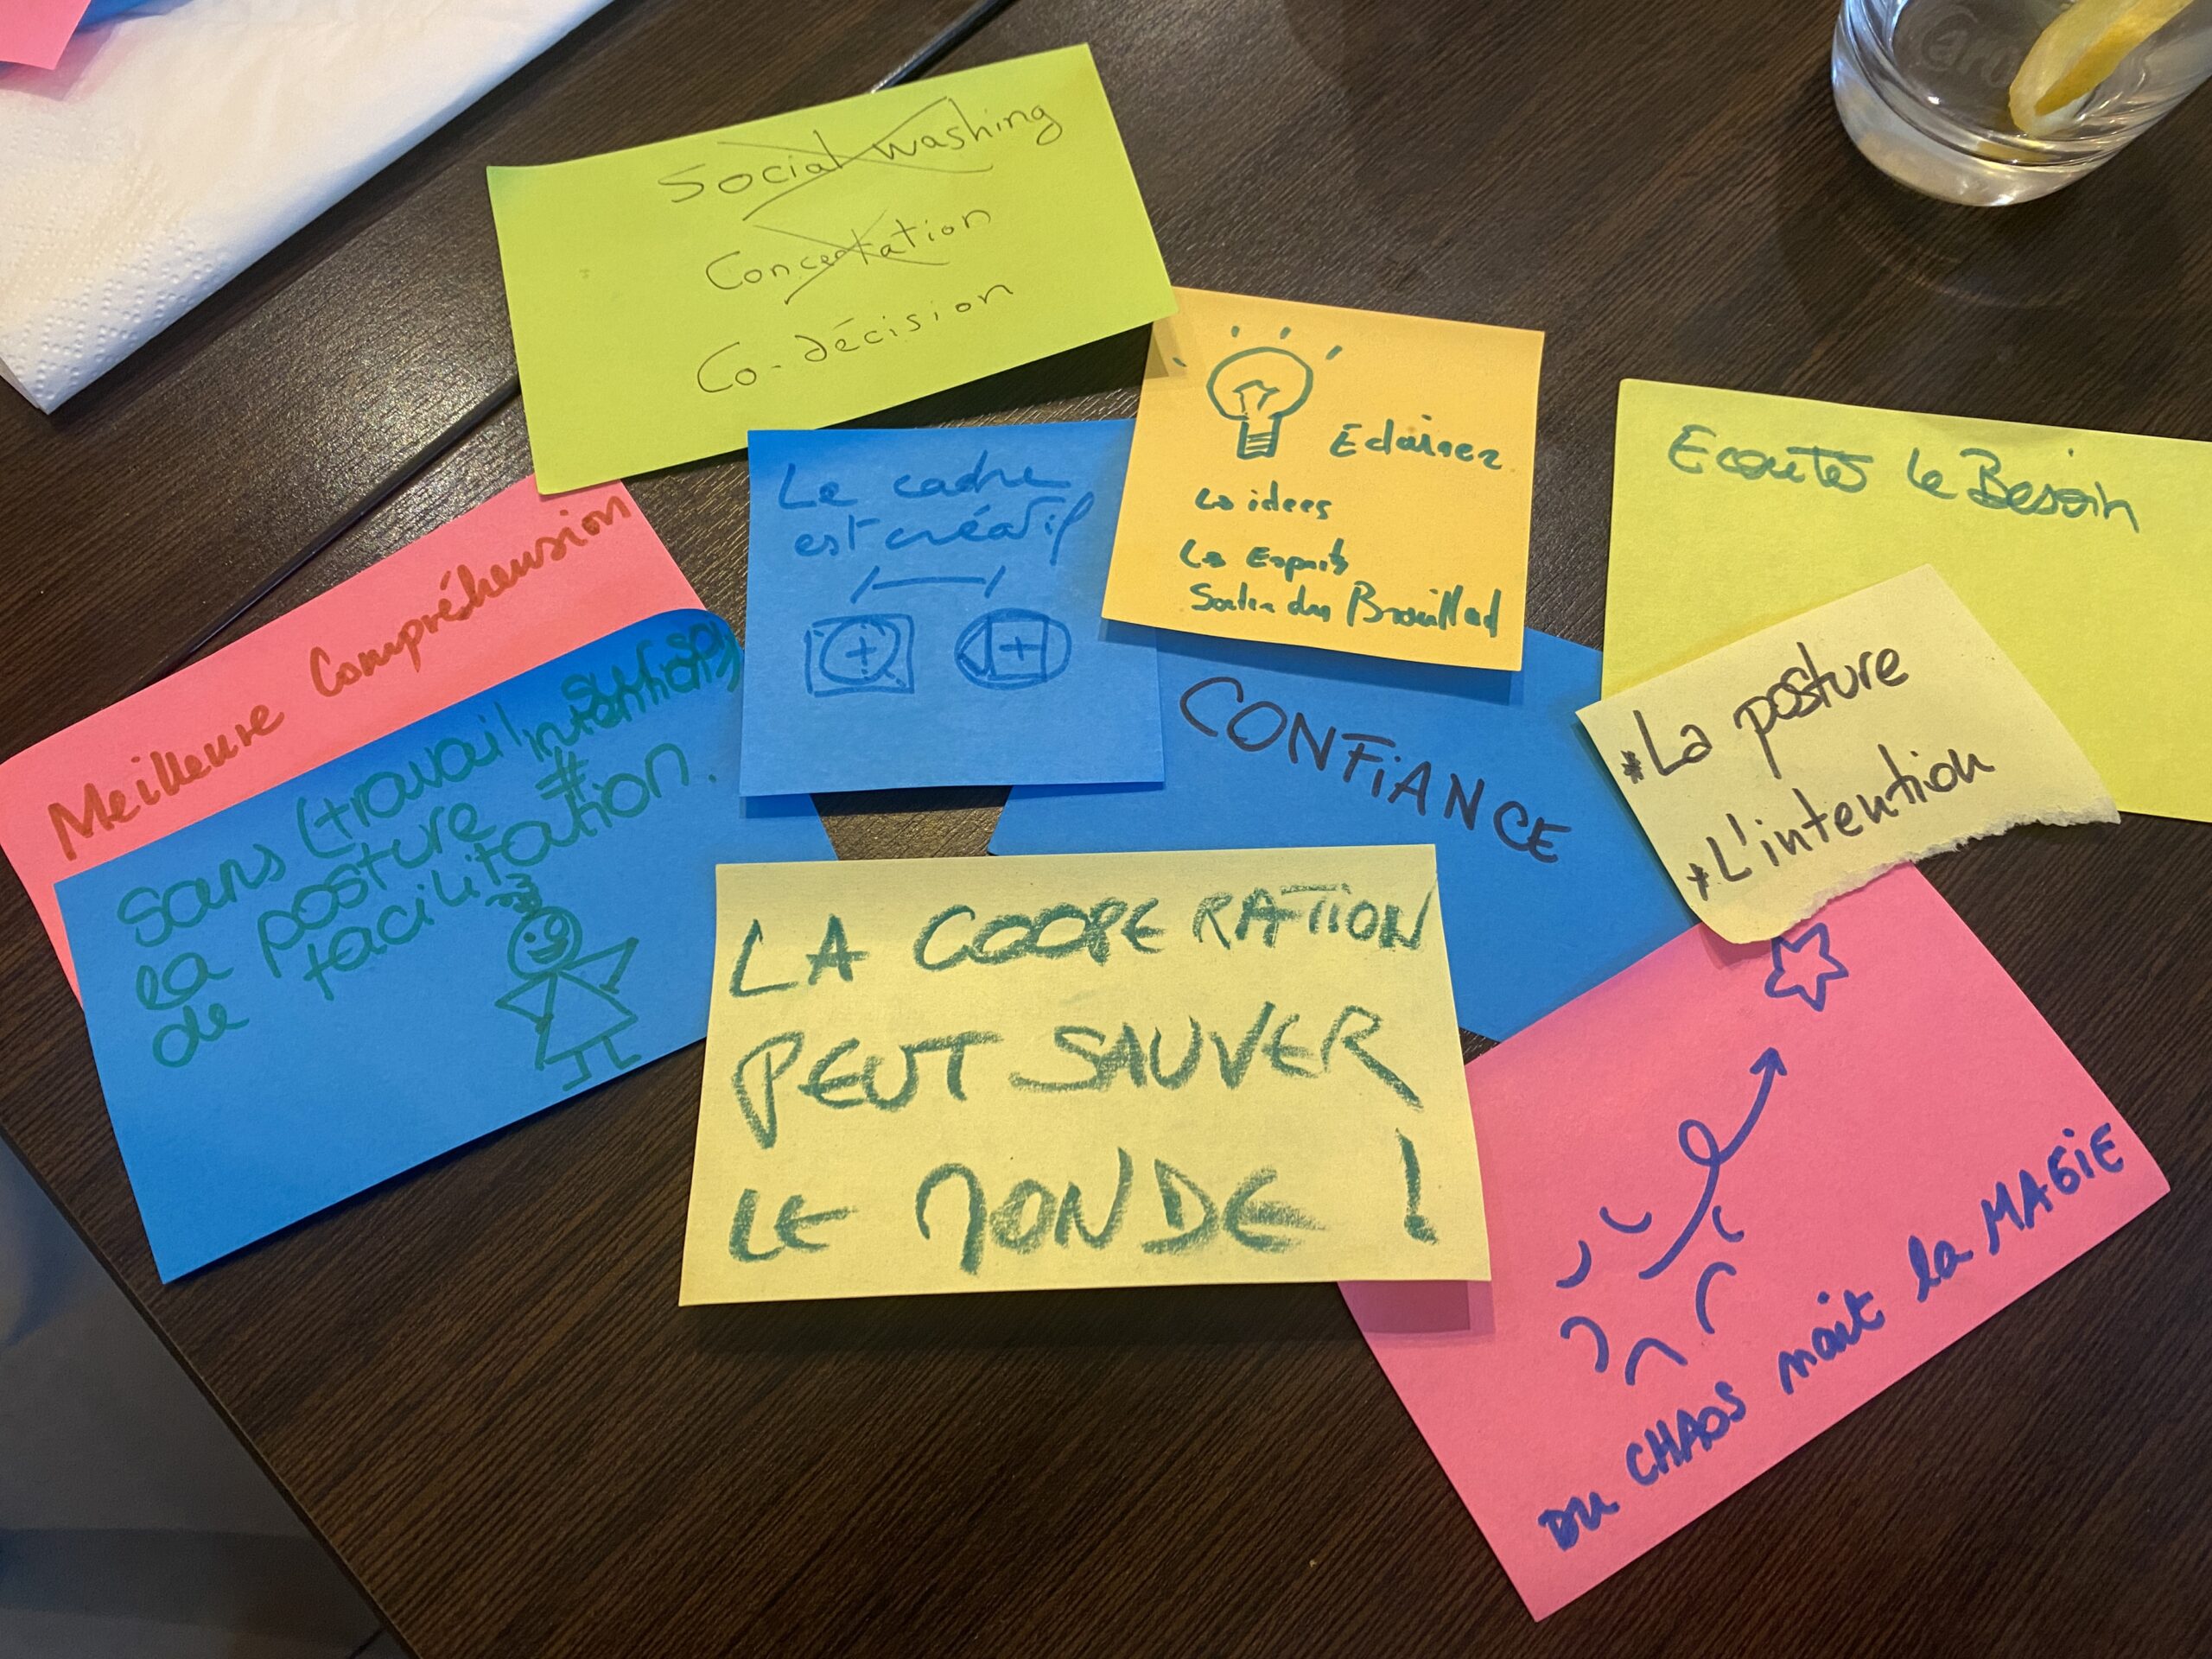 Social washing
Concertation
Co-décision
Eclairer
les idees
les Esprits
Sortir du Brouillard
Ecouter le Besoin
Le cadre
est créatif
Meilleure Compréhension
Sans (travail
intention)
la posture #
de facilitation.
CONFiANCE
*La posture
*L'intention
LA COOPERATION
PEUT SAUVER
LE MONDE !
DU CHAOS nait la MAGiE